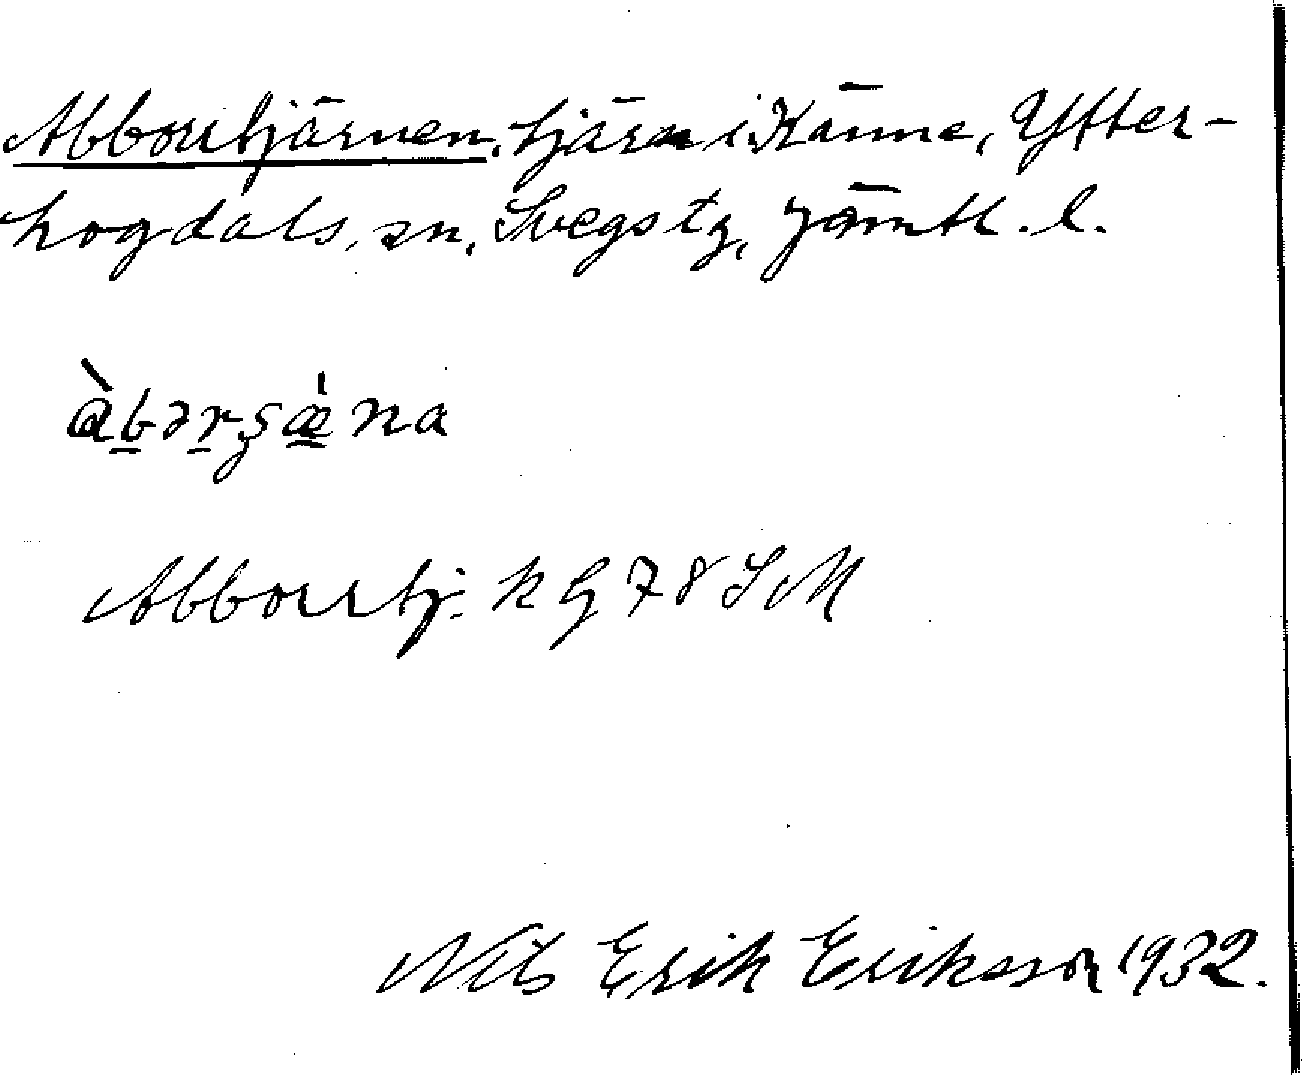 Abborrtjärnen, tjärn i Känne, Ytter-
hogdals, sn, Svegs tg, Jämtl. l.
àbərʂæ̀na
Abborrtj. k G 78 SM
Nils Erik Eriksson 1932.